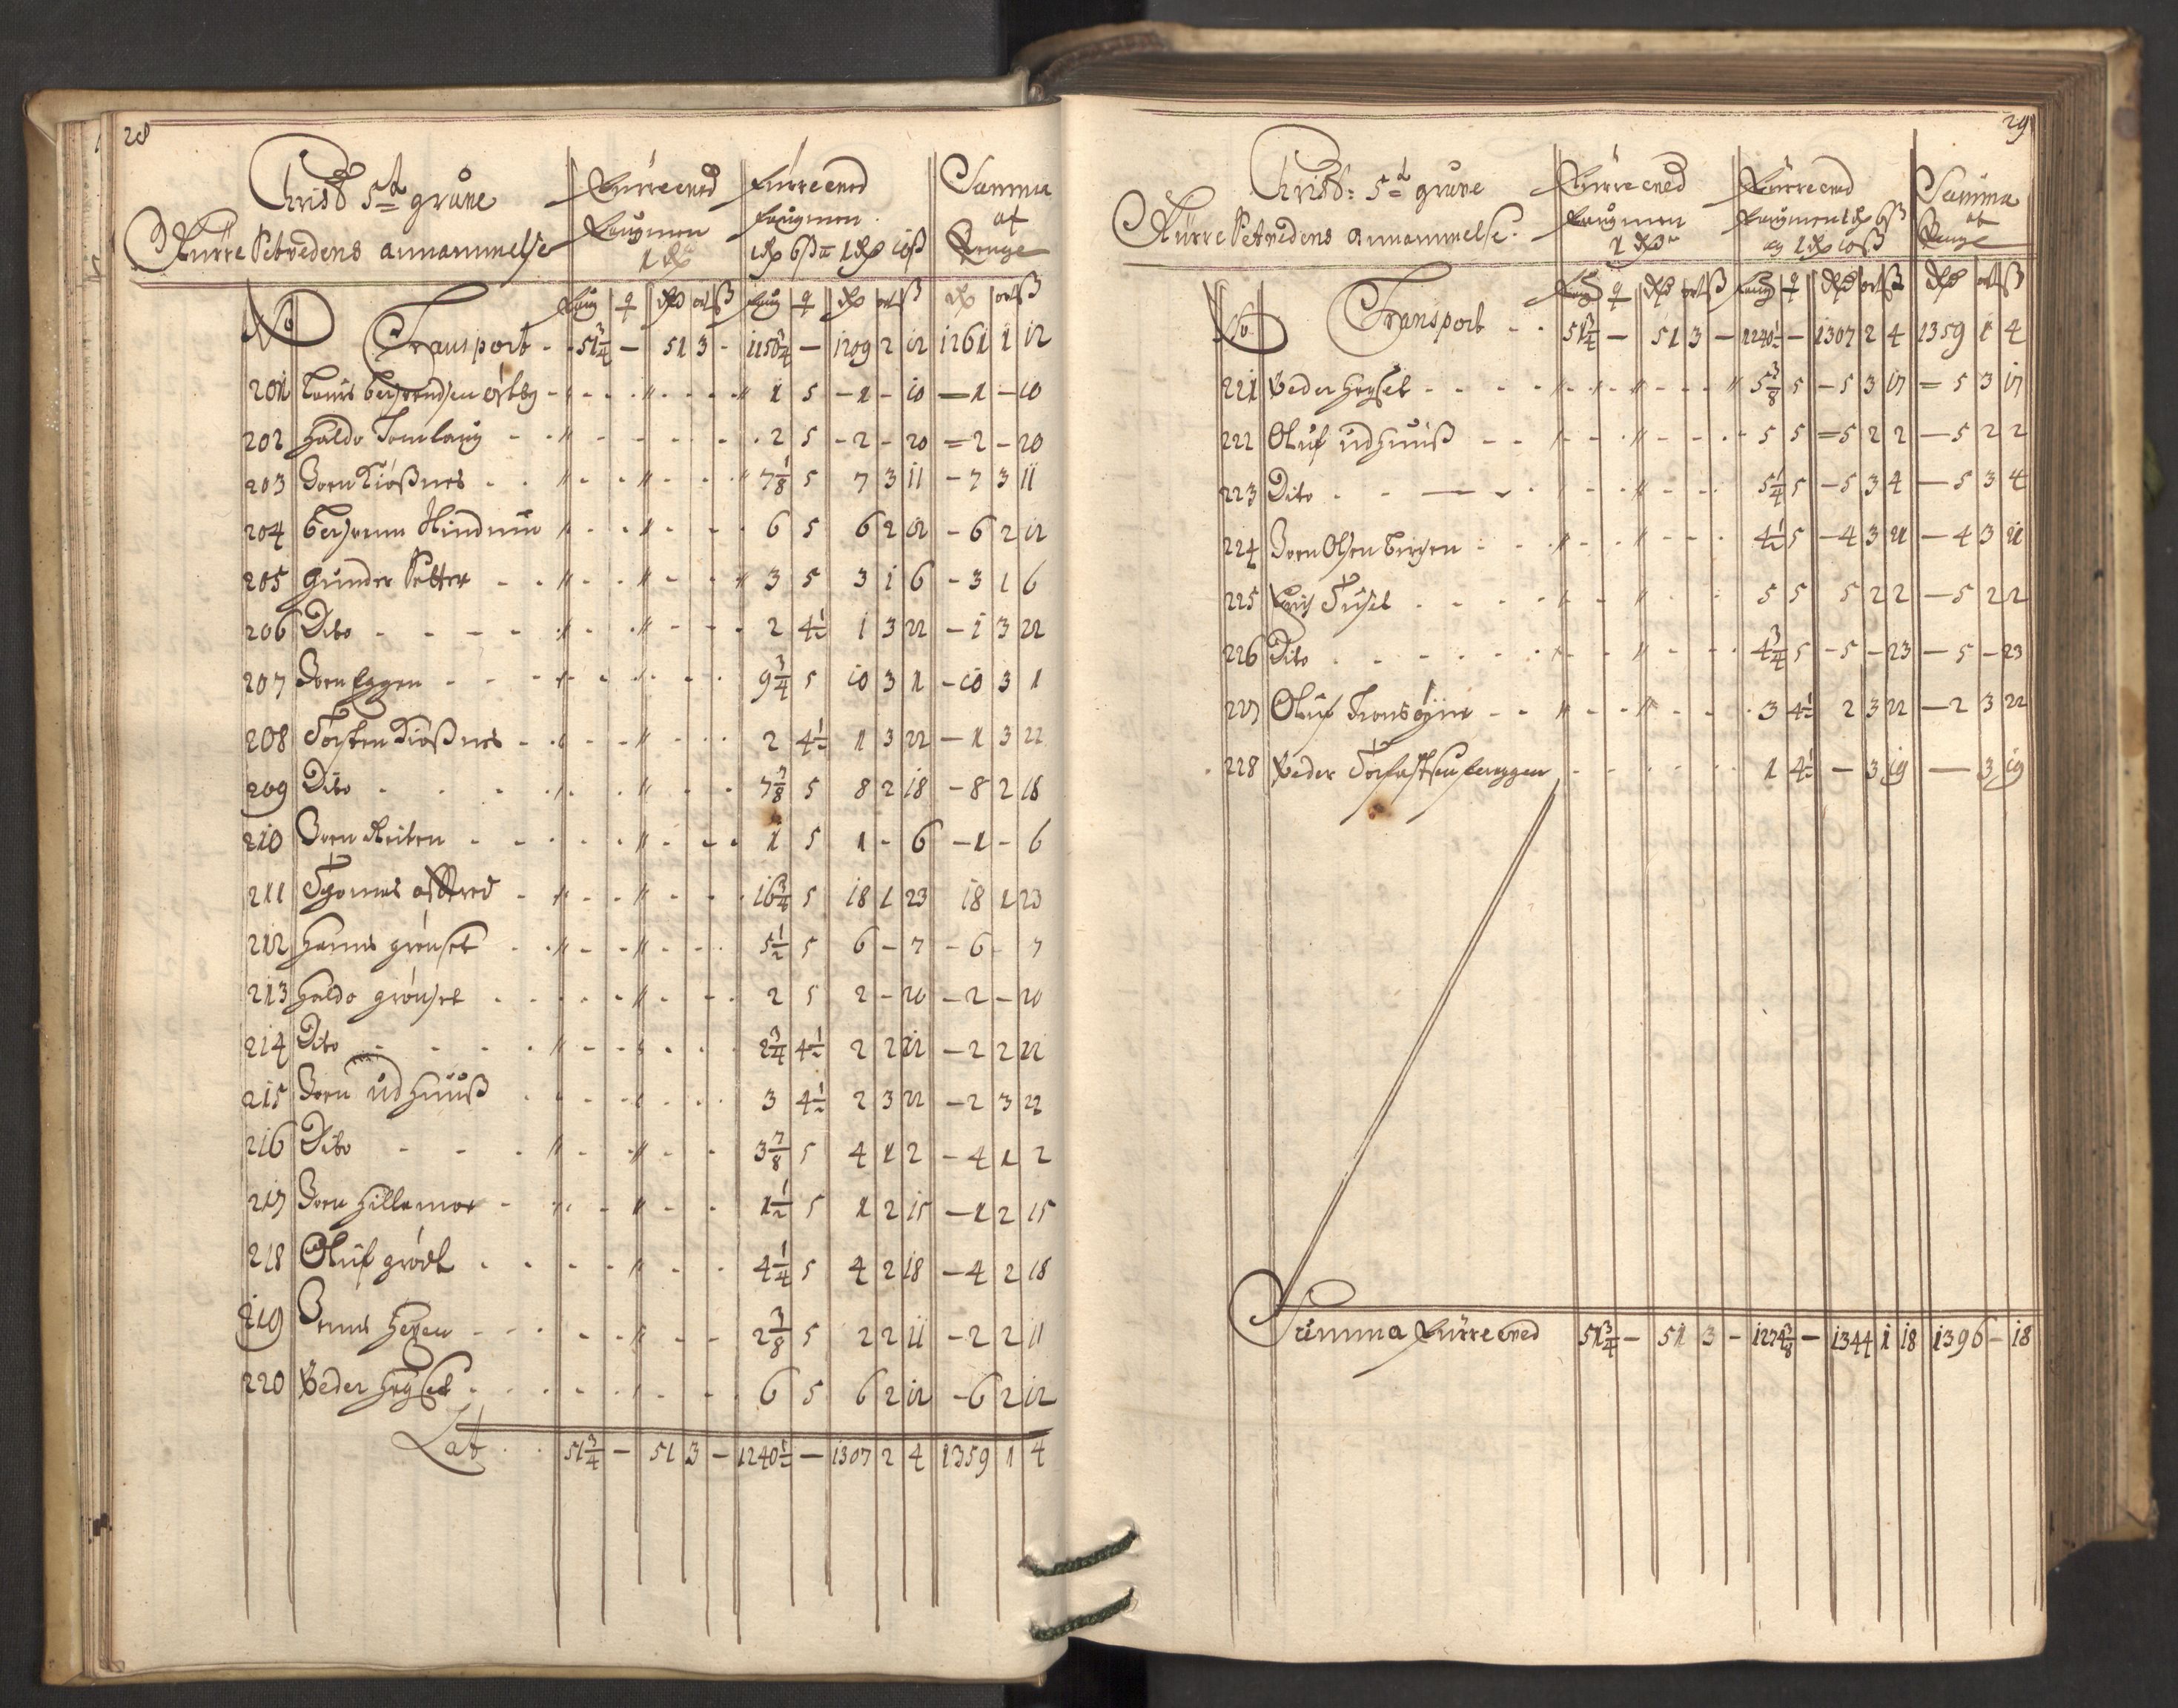 28
Christ 5te grube
Fürreveed
Fürreveed
Summa
Fürre Vetvedens annammelse
faugnen
faugnen
af
1 Rd
1 Rd 6 ß a 1 Rd 10 ß
Penge
No faug q Rd ort ß faug q Rd ort ß Rd ort ß
Transport - - 51 3/4 — 51 3 - 1156 3/4 — 1209 2 12 1261 1 12
201 1 5 - 1 - 10 — 1 — 10
202 Haldo 2 5 - 2 - 20 = 2 - 20
203 Joen Kiößnes 7 1/8 5 7 3 11 - 7 3 11
204 6 5 6 2 12 - 6 2 12
205 Gunder Sætter 3 5 3 1 6 - 3 1 6
206 Dito 2 4 1/2 1 3 22 - 1 3 22
207 Joen Eggen 9 3/4 5 10 3 1 - 10 3 1
208 Torsten Kiößnes 2 4 1/2 1 3 22 — 1 3 22
209 Dito 7 7/8 5 8 2 18 - 8 2 18
210 Joen Reiten 1 5 1 - 6 — 1 - 6
211 Thomas 16 3/4 5 18 1 23 18 1 23
212 Hanns grönset 5 1/2 5 6 - 7 - 6 - 7
213 Haldo grönset 2 5 2 - 20 - 2 - 20
214 Dito 2 3/4 4 1/2 2 2 22 - 2 2 22
215 Joen Udhuuß 3 4 1/2 2 3 22 - 2 3 22
216 Dito 3 7/8 5 4 1 2 - 4 1 2
217 Joen Hillemoe 1 1/2 5 1 2 15 — 1 2 15
218 Oluf grödt 4 1/4 5 4 2 18 - 4 2 18
219 2 3/8 5 2 2 11 - 2 2 11
220 Peder Hogset 6 5 6 2 12 - 6 2 12
Lat 51 3/4 — 51 3 - 1240 1/2 — 1307 2 4 1359 1 4
29
Christ: 5te grube
Fürreved
Fürreved
Summa
Fürre Vetvedens annammelse.
faugnen
faugnen 1 Rd 6 ß
af
1 Rd
og 1 Rd 10 ß
Penge
No faug q Rd ort ß faug q Rd ort ß Rd ort ß
Transport - - 51 3/4 — 51 3 — 1240 1/2 - 1307 2 4 1359 1 4
221 Peder Hogset 5 3/8 5 - 5 3 17 = 5 3 17
222 Oluf Udhuuß 5 5 = 5 2 2 — 5 2 2
223 Dito 5 1/4 5 - 5 3 4 — 5 3 4
224 Joen Olsen 4 1/2 5 - 4 3 21 — 4 3 21
225 5 5 5 2 2 — 5 2 2
226 Dito 4 3/4 5 - 5 - 23 — 5 - 23
227 Oluf 3 4 1/2 2 3 22 — 2 3 22
228 Peder 1 4 1/2 — 3 19 — 3 19
Summa Fürreved 51 3/4 — 51 3 - 1274 3/8 — 1344 1 18 1396 - 18